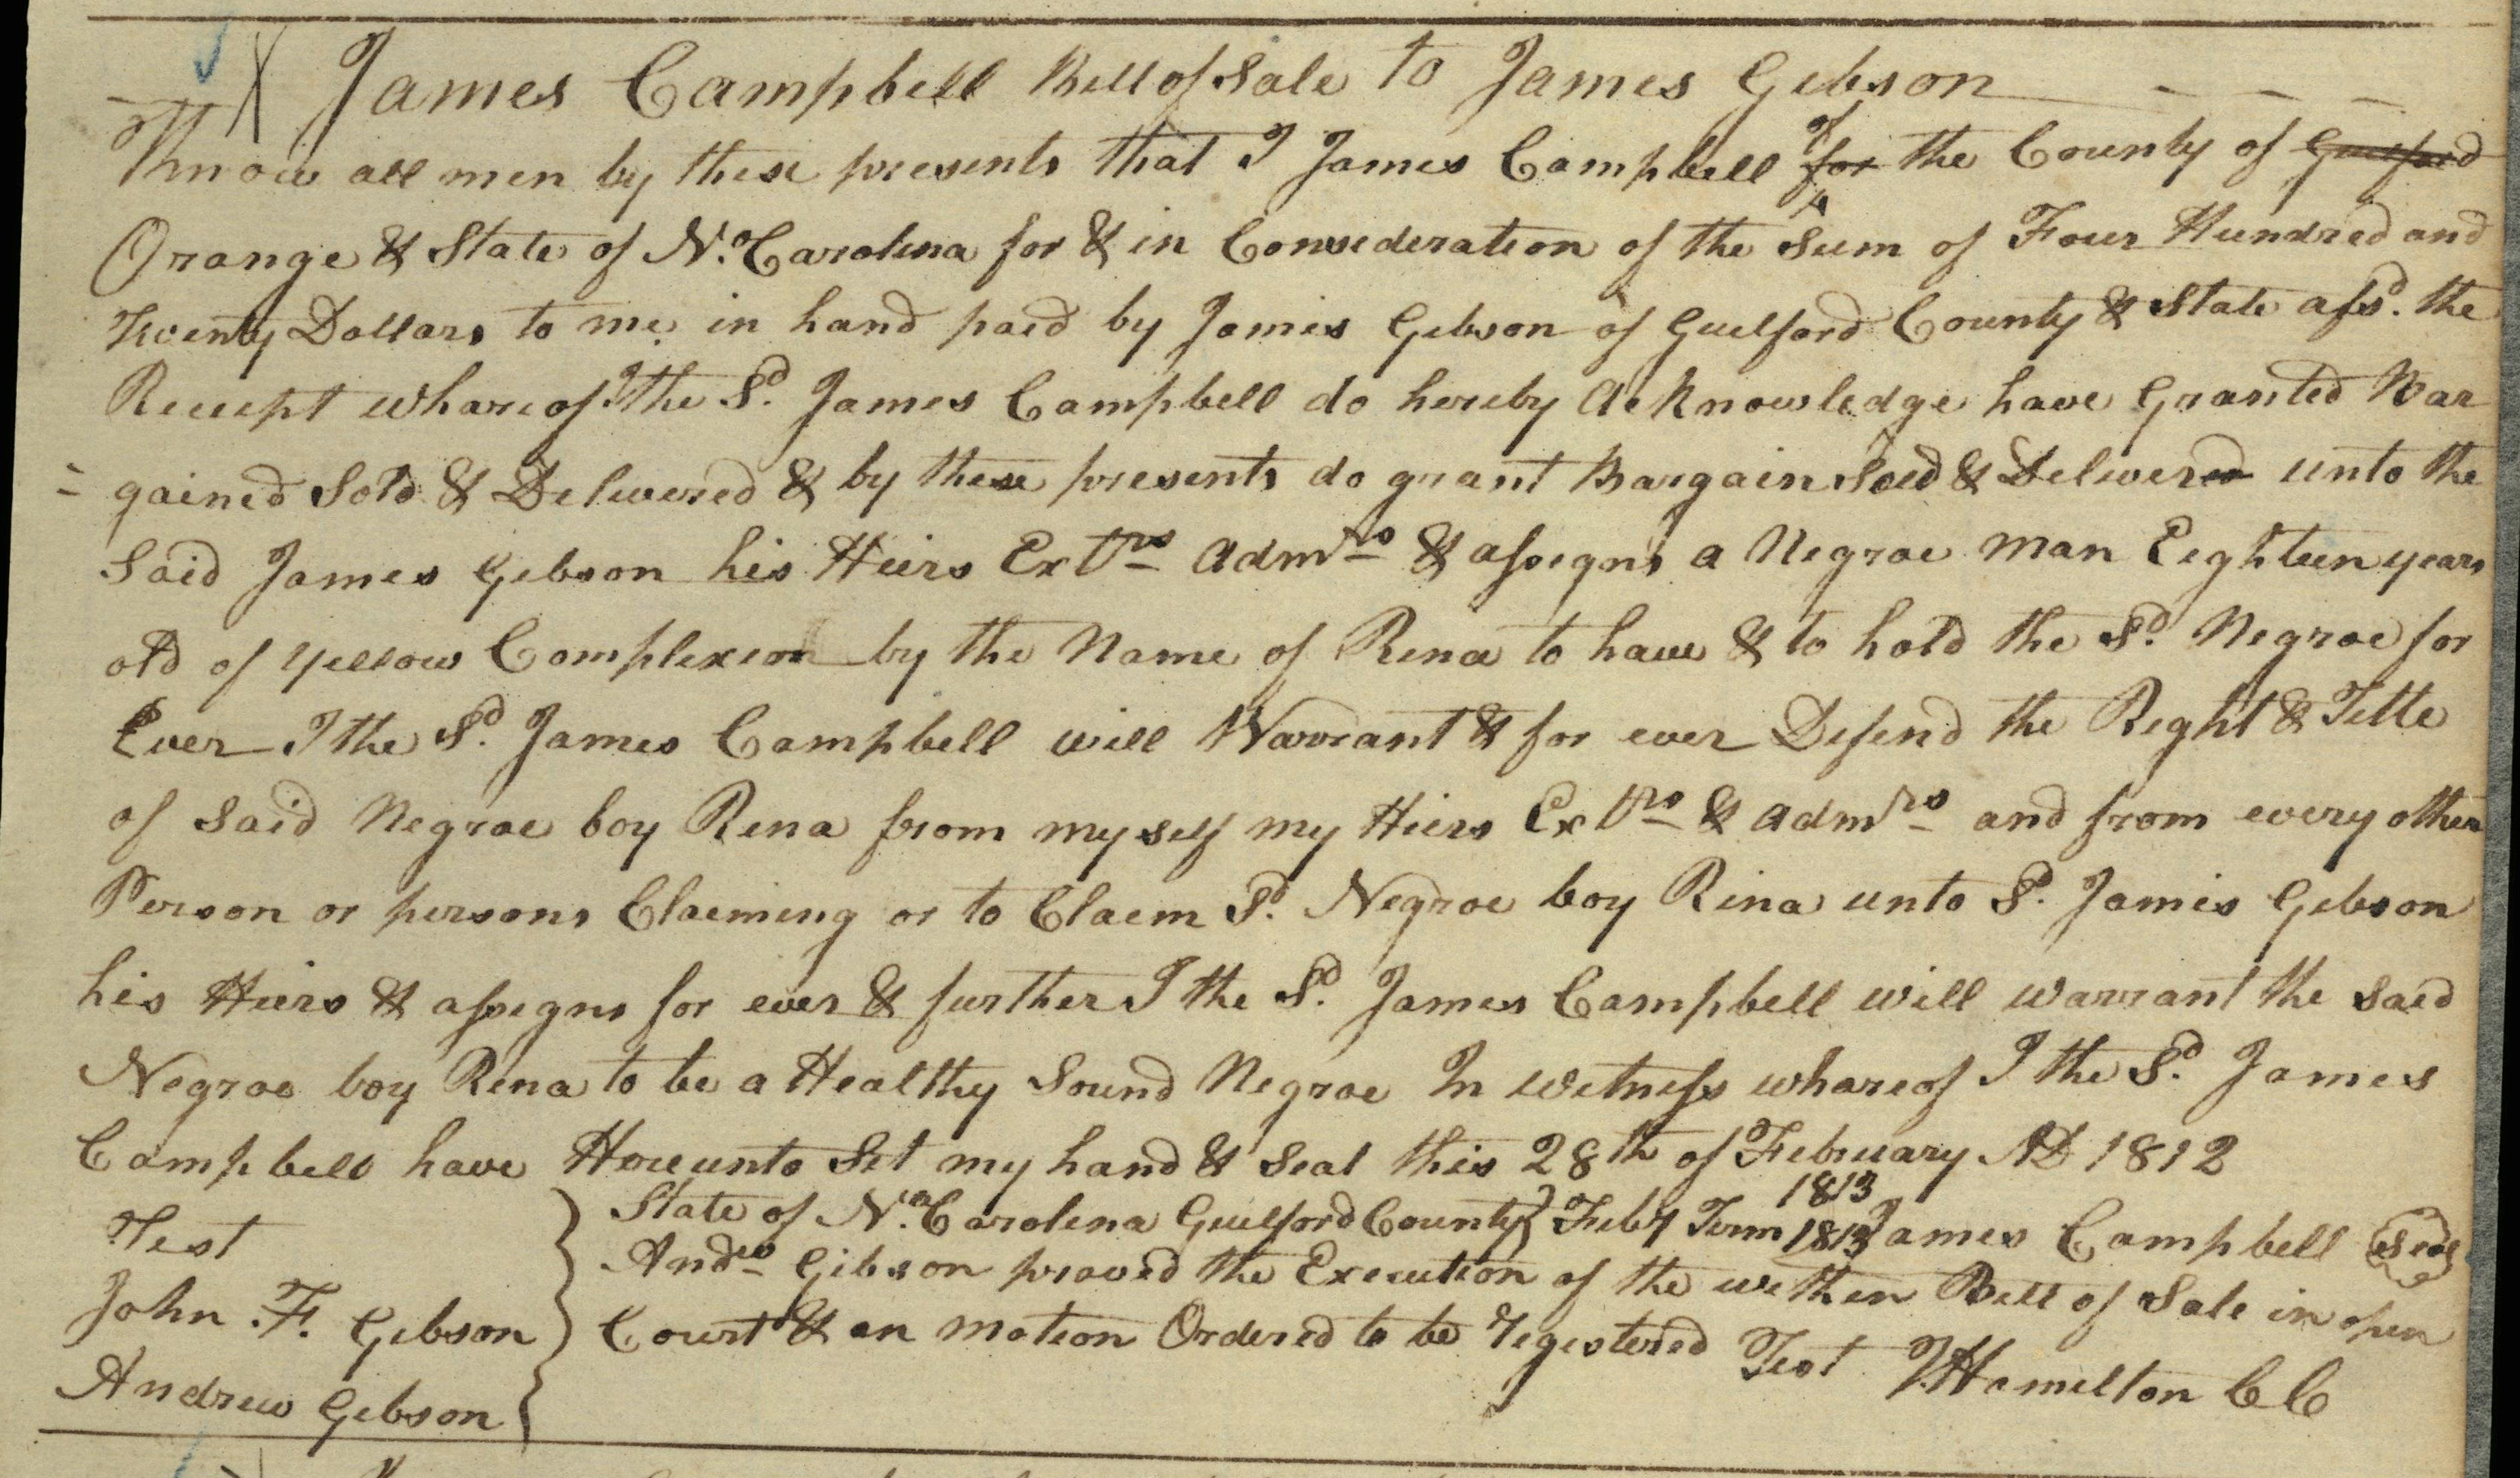 James Campbell Bill of Sale to James Gibson
Know all men by these presents that I James Campbell of for the County of Guilford
Orange & State of No. Carolina for & in Consideration of the Sum of Four Hundred and
Twenty Dollars to me in hand paid by James Gibson of Guilford County & State afsd. the
Receipt whareof I the Sd. James Campbell do hereby Acknowledge have Granted Bar
- gained Sold & Delivered & by these presents do grant Bargain Sold & Delivered unto the
Said James Gibson his Heirs Extrs Admrs & assigns a Negroe man Eighteen years
old of yellow Complexion by the Name of Rena to have & to hold the Sd. Negroe for
Ever I the Sd. James Campbell will Warrant & for ever Defend the Right & Title
of said Negroe boy Rena from my self my Hiers Extrs & admrs and from every other
Person or persons Claiming or to Claim Sd. Negroe boy Rina unto Sd. James Gibson
his Heirs & assigns for ever & further I the Sd. James Campbell will warrant the said
Negroe boy Rena to be a Healthy Sound Negroe In witness whareof I the Sd. James
Campbell have Hereunto Set my hand & Seal this 28th of February AD 1812
1813
Test
State of No. Carolina Guilford County } Feby Term 1813 James Campbell Seal
Andw Gibson proved the Execution of the within Bill of Sale in open
John F. Gibson
Court & on motion Ordered to be registered Test J. Hamilton CC
Andrew Gibson